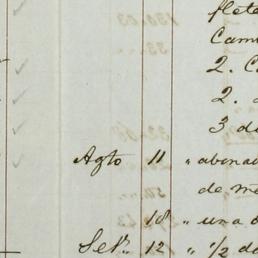 flete
Cam
2. C
2.
3 do
Agto 11 " abona
de me
18 " una
Set. 12 " 1/2 do